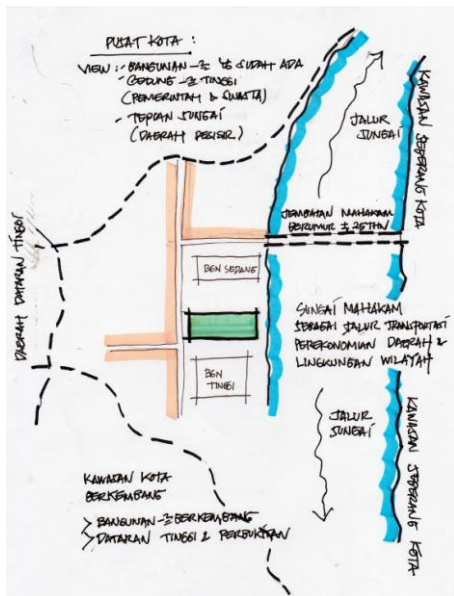 PUSAT KOTA :
VIEW :- BANGUNAN-2 YG SUDAH ADA
- GEDUNG-2 TINGGI
(PEMERINTAH & SWASTA)
- TEPIAN SUNGAI
(DAERAH PESISIR)
JALUR
SUNGAI
KAWASAN SEBERANG KOTA
DAERAH DATARAN TINGGI
JEMBATAN MAHAKAM
BERUMUR ± 25 THN
BGN SEDANG
SUNGAI MAHAKAM
SEBAGAI JALUR TRANSPORTASI
PEREKONOMIAN DAERAH &
LINGKUNGAN WILAYAH
BGN
TINGGI
JALUR
SUNGAI
KAWASAN SEBERANG KOTA
KAWASAN KOTA
BERKEMBANG
> BANGUNAN-2 BERKEMBANG
> DATARAN TINGGI & PERBUKITAN